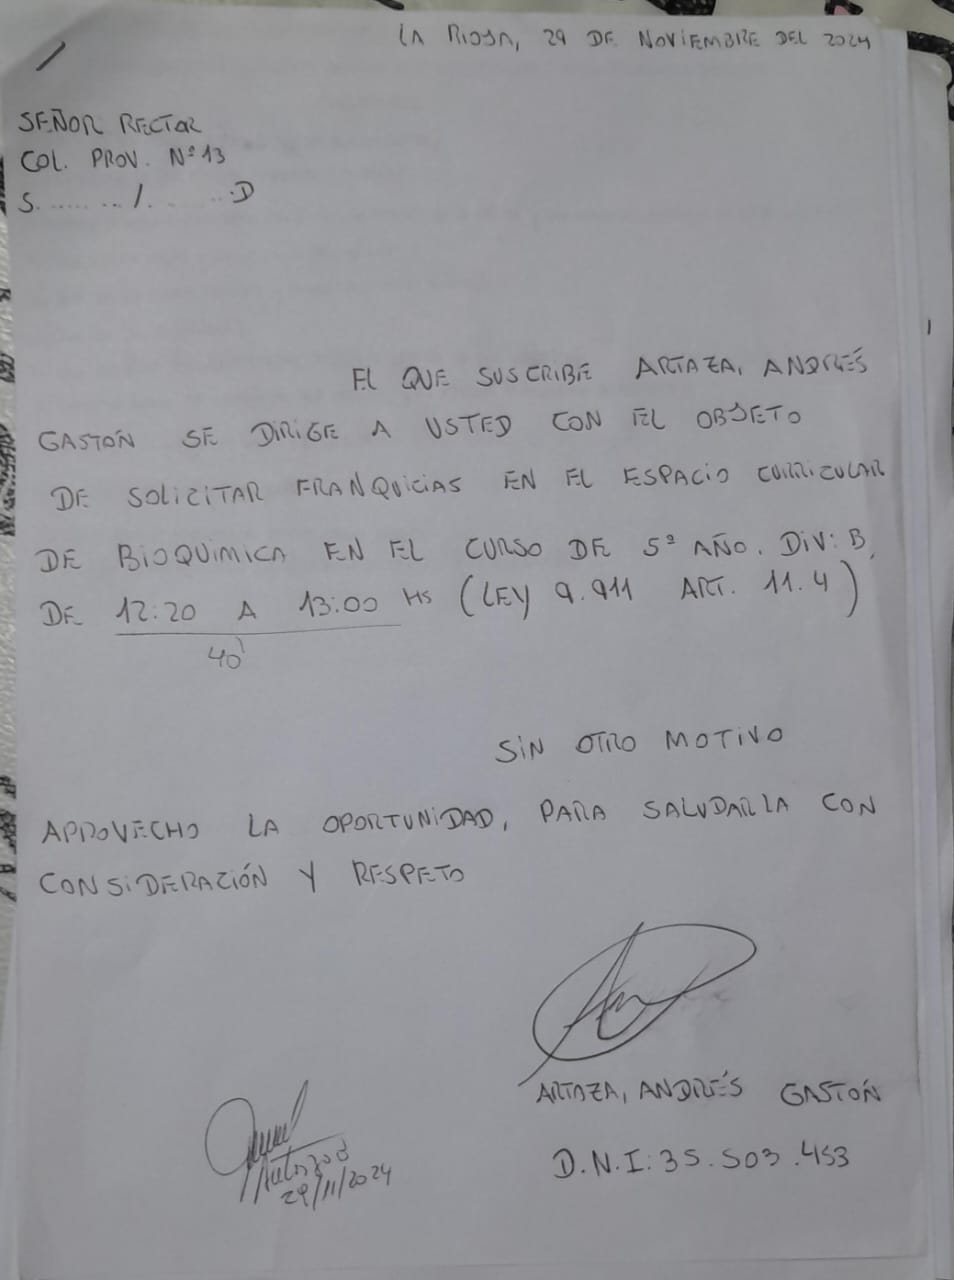 LA RIOJA, 29 DE NOVIEMBRE DEL 2024
SEÑOR RECTOR
COL. PROV. Nº 13
S. ...... .. /. ...... ..D
EL QUE SUSCRIBE ARTAZA, ANDRÉS
GASTÓN SE DIRIGE A USTED CON EL OBJETO
DE SOLICITAR FRANQUICIAS EN EL ESPACIO CURRICULAR
DE BIOQUIMICA EN EL CURSO DE 5º AÑO. DIV: B,
DE 12:20 A 13:00 HS (LEY 9.911 ART. 11.4)
40'
SIN OTRO MOTIVO
APROVECHO LA OPORTUNIDAD, PARA SALUDARLA CON
CONSIDERACIÓN Y RESPETO
ARTAZA, ANDRÉS GASTÓN
D.N.I: 35.503.453
29/11/2024